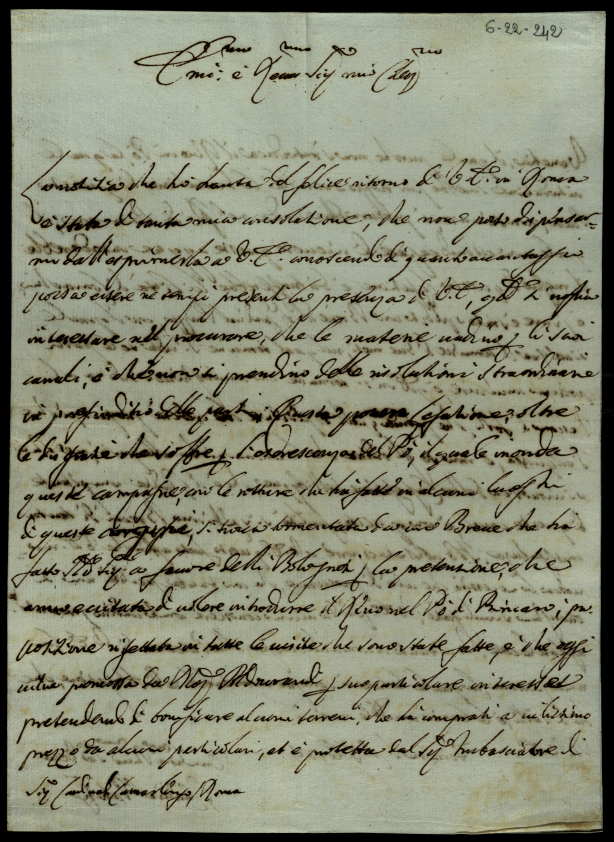 6-22-242
Em.mo e Rev.mo Sig.r mio Col.mo
La notitia che hò hauta del felice ritorno di V. E. in Roma
è stata di tanta mia consolatione, che non posso dispensar-
mi dall'esprimerla a V. E. conoscendo di quanto auantaggio
possa essere ne i presenti la presenza di V. E.,
interessare nel procurare, che le materie uadino p li suoi
canali, e che non si prendino delle risolutioni straordinarie
in pregiuditio delle Questa pouera Legatione, oltre
le disgratie che soffre p l'escrescenza del Pò, il quale inonda
queste campagne, con le rotture che hà fatto in alcuni luoghi
di queste, si troua tormentata da un Breue che hà
fatto a fauore delli Bolognesi p la pretensione, che
di uolere introdurre il Reno nel Pò di Primaro, pro-
positione rigettata in tutte le uisite che sono state fatte, e che oggi
uiene promossa da Mons.r Aldourandi p suo particolare interesse
pretendendo di bonificare alcuni terreni, che hà comprati a uilissimo
prezzo da alcuni particolari, et è protetta dal Sig.r Ambasciatore di
Sig.r Cardinale Camarlengo Roma